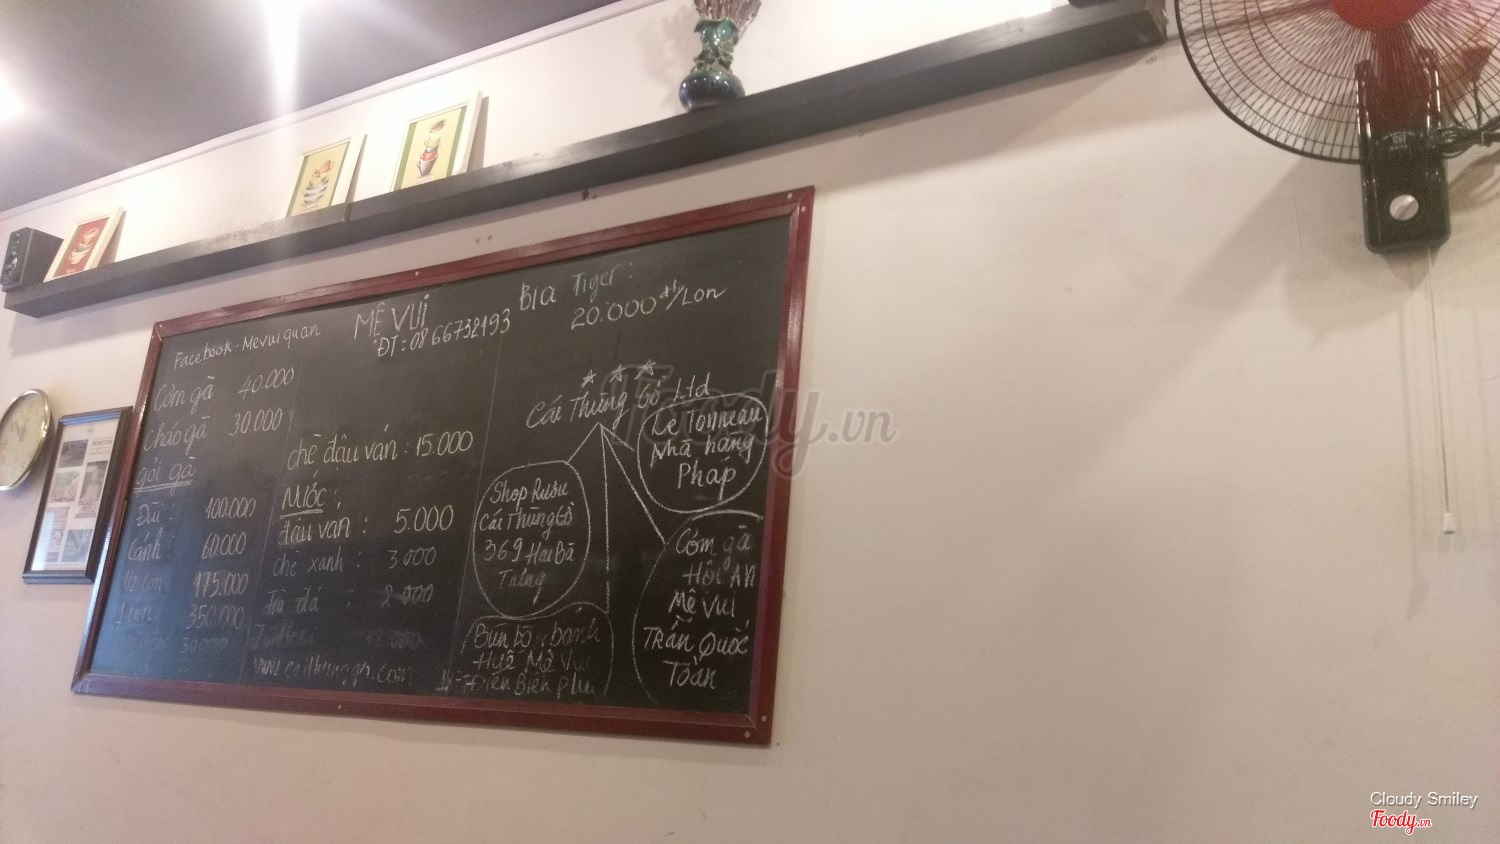 Facebook - Mevuiquan
MÊ VUI
ĐT : 08 66732193
BIA Tiger :
20.000đ/Lon
Cơm gà 40.000
cháo gà 30.000
gỏi gà
Đùi : 100.000
Cánh : 60.000
1/2 con 175.000
1 con 350.000
30.000
chè đậu ván : 15.000
Nước :
đậu ván : 5.000
chè xanh : 3.000
Trà đá : 2.000
www.caithunggo.com
Cái Thùng Gỗ Ltd
Le Tonneau
Nhà hàng
Pháp
Shop Rượu
Cái Thùng Gỗ
369 Hai Bà
Trưng
Cơm gà
Hội AN
Mê Vui
Trần Quốc
Toản
Bún bò, bánh
Huế Mê Vui
Điện Biên Phủ
Foody.vn
Cloudy Smiley
Foody.vn